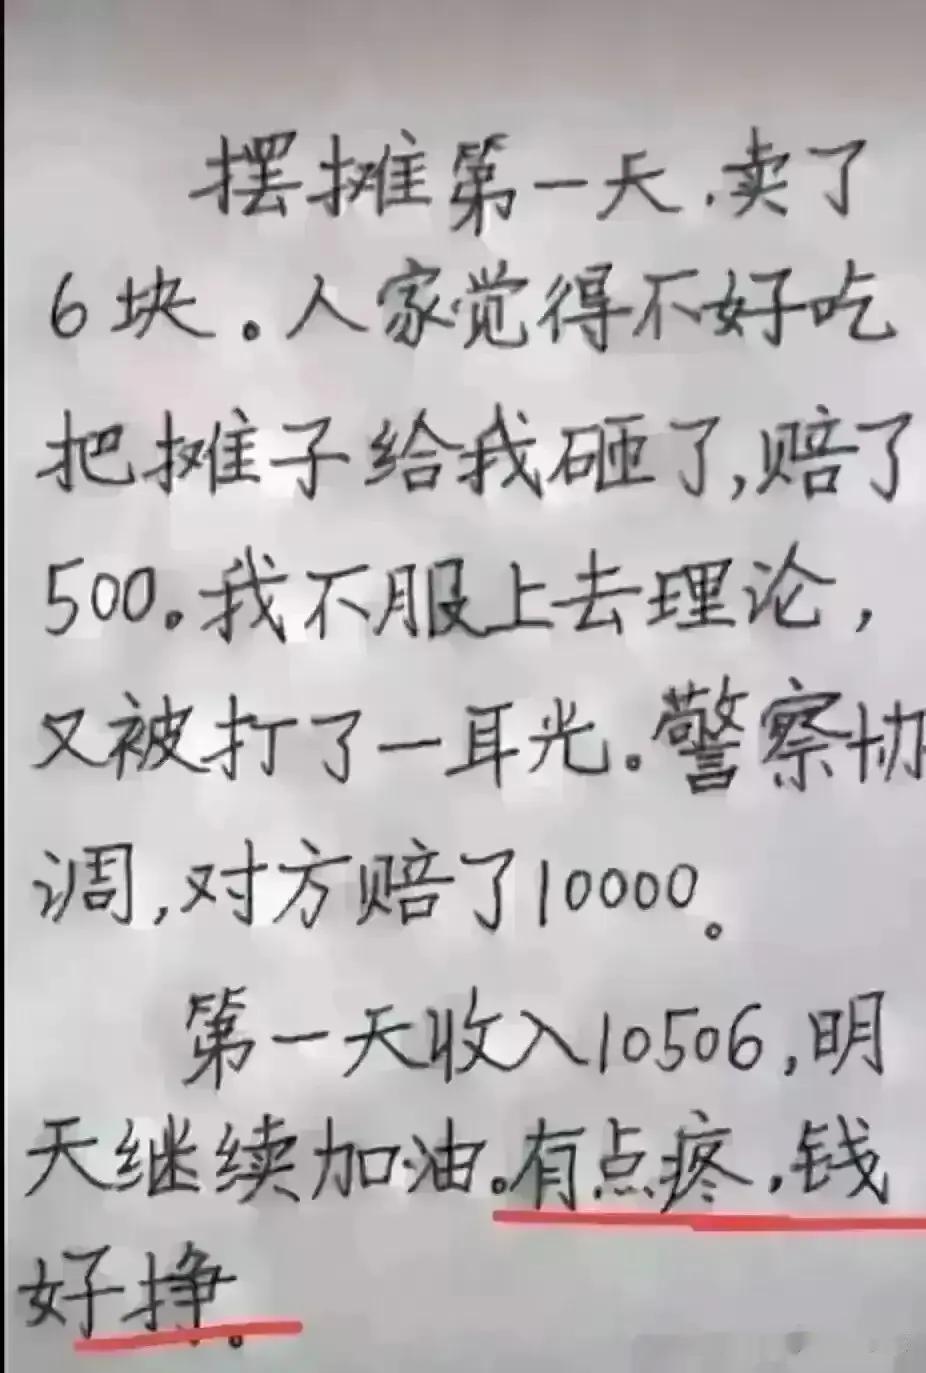 摆摊第一天,卖了
6块。人家觉得不好吃
把摊子给我砸了,赔了
500。我不服上去理论,
又被打了一耳光。警察协
调,对方赔了10000。
第一天收入10506,明
天继续加油。有点疼,钱
好挣。